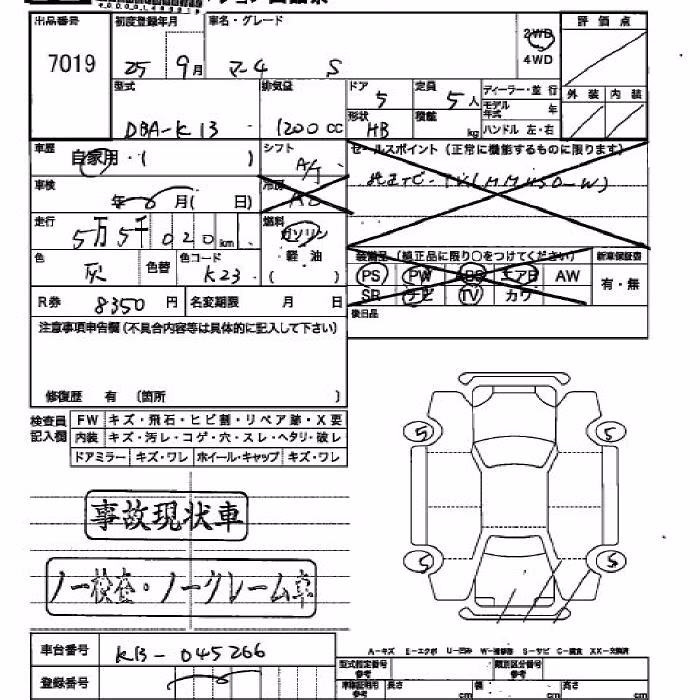 出品番号 初度登録年月 車名・グレード 評価点
7019 25 9月 マーチ S 2WD
4WD
型式 排気量 ドア 定員 ディーラー・並行 外装 内装
5 5人 モデル年式 年
DBA-K13 1200cc 形状 積載 ハンドル 左・右
HB kg
車歴 自家用・( ) シフト A/T セールスポイント(正常に機能するものに限ります)
車検 年 月( 日) 冷房 AC
走行 5万5千020km 燃料 ガソリン
軽油
( )
色 灰 色替 色コード K23 装備品(純正品に限り○をつけてください) 新車保証書
PS PW エアB AW 有・無
R券 8350円 名変期限 月 日 SR ナビ TV カワ
注意事項申告欄(不具合内容等は具体的に記入して下さい) 後日品
修復歴 有 (箇所 )
検査員 FW キズ・飛石・ヒビ割・リペア跡・X要
記入欄 内装 キズ・汚レ・コゲ・穴・スレ・ヘタリ・破レ
ドアミラー キズ・ワレ ホイール・キャップ キズ・ワレ
5 5
事故現状車
5 5
ノー検査・ノークレーム車
車台番号 K13-045266
A-キズ E-エクボ U-凹み W-補修跡 S-サビ C-腐食 XX-交換済
登録番号 型式指定番号 参考 類別区分番号 参考
車庫証明用 参考 長さ cm 幅 cm 高さ cm